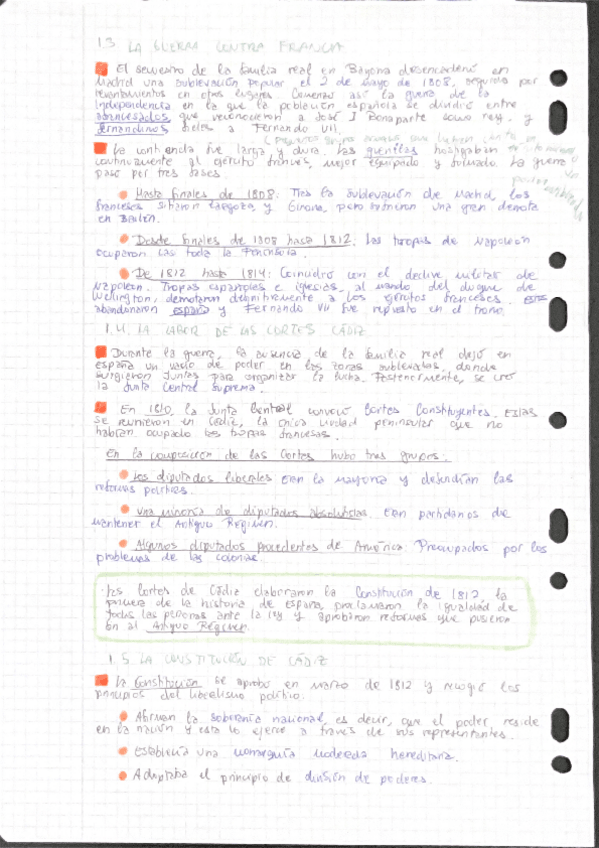 1.3 LA GUERRA CONTRA FRANCIA
El secuestro de la familia real en Bayona desencadenó en
Madrid una sublevación popular el 2 de mayo de 1808, seguida por
levantamientos en otros lugares. Comenzó así la guerra de la
Independencia en la que la población española se dividió entre
afrancesados que reconocieron a José I Bonaparte como rey, y
fernandinos fieles a Fernando VII.
La contienda fue larga y dura. Las guerrillas hostigaban
continuamente al ejército francés, mejor equipado y formado. La guerra
pasó por tres fases.
Hasta finales de 1808: Tras la sublevación de Madrid, los
franceses sitiaron Zaragoza y Girona, pero sufrieron una gran derrota
en Bailén.
Desde finales de 1808 hasta 1812: Las tropas de Napoleón
ocuparon casi toda la Península.
De 1812 hasta 1814: Coincidió con el declive militar de
Napoleón. Tropas españolas e inglesas, al mando del duque de
Wellington, derrotaron definitivamente a los ejércitos franceses. Estos
abandonaron españa y Fernando VII fue repuesto en el trono.
1.4. LA LABOR DE LAS CORTES CÁDIZ
Durante la guerra, la ausencia de la familia real dejó en
españa un vacío de poder en las zonas sublevadas, donde
surgieron Juntas para organizar la lucha. Posteriormente, se creó
la Junta Central Suprema.
En 1810, la Junta Central convocó Cortes Constituyentes. Estas
se reunieron en Cádiz, la única ciudad peninsular que no
habían ocupado las tropas francesas.
En la composición de las Cortes hubo tres grupos:
Los diputados liberales eran la mayoría y defendían las
reformas políticas.
Una minoría de diputados absolutistas. Eran partidarios de
mantener el Antiguo Régimen.
Algunos diputados procedentes de América. Preocupados por los
problemas de las colonias.
Las Cortes de Cádiz elaboraron la Constitución de 1812, la
primera de la historia de españa, proclamaron la igualdad de
todas las personas ante la ley y aprobaron reformas que pusieron
fin al Antiguo Régimen.
1.5 LA CONSTITUCIÓN DE CÁDIZ
La Constitución se aprobó en marzo de 1812 y recogió los
principios del liberalismo político.
Afirman la soberanía nacional, es decir, que el poder reside
en la nación y esta lo ejerce a través de sus representantes.
Establecía una monarquía moderada hereditaria.
Adaptaba el principio de división de poderes.